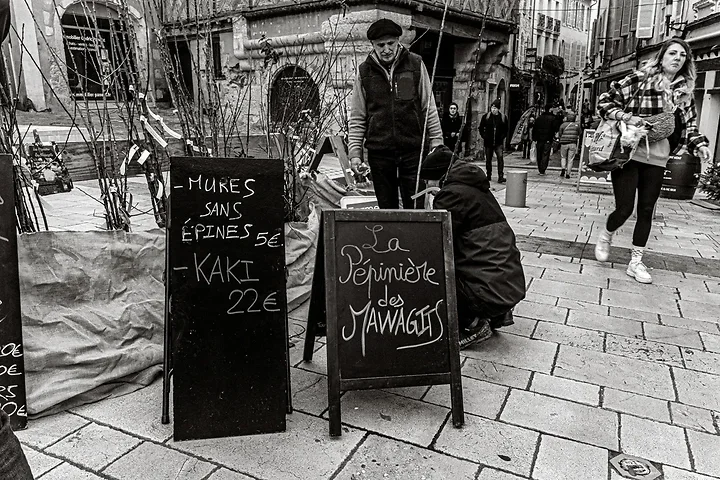 - MURES
SANS
ÉPINES 5€.
- KAKI
22€
La
Pépinière
des
MAWAGITS